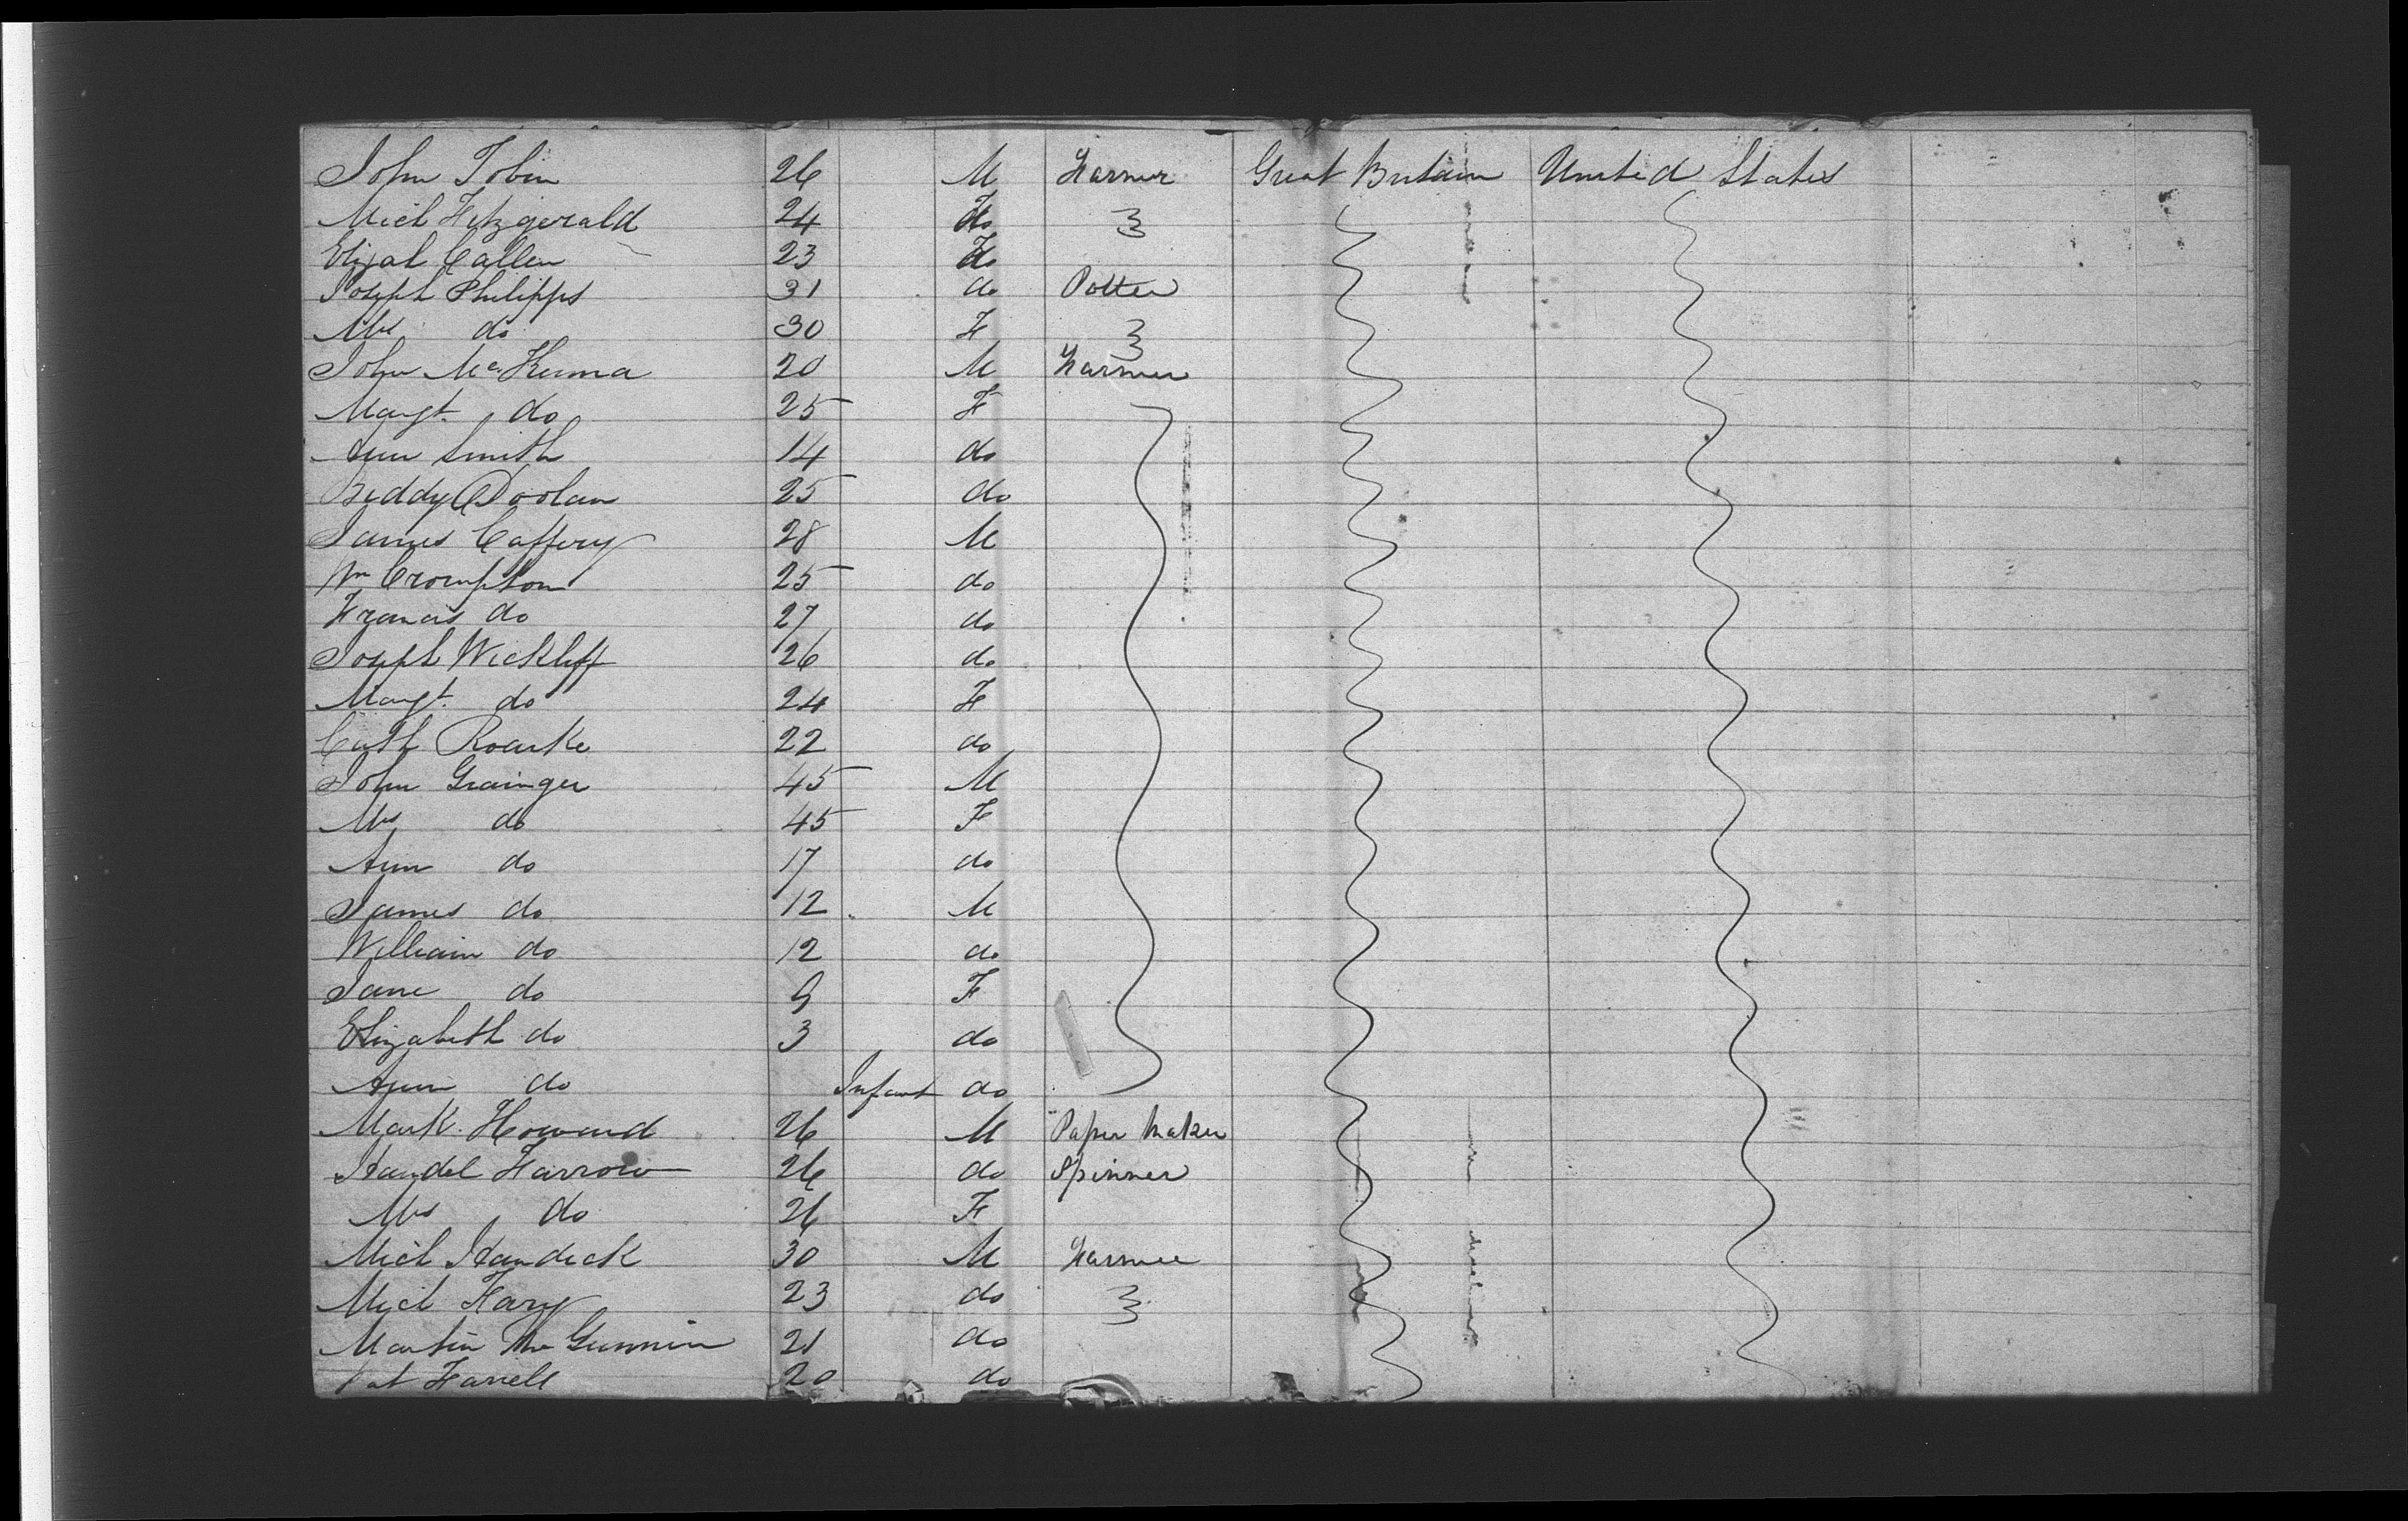 John Tobin 26 M Farmer Great Britain United States
Mich Fitzgerald 24 do
Elizah Callen 23 do
Joseph Philipps 31 do Potter
Mrs do 30 F
John McKenna 20 M Farmer
Margt. do 25 F
Ann Smith 14 do
Biddy Doolan 25 do
James Caffery 28 M
Wm Crompton 25 do
Francis do 27 do
Joseph Wickliff 26 do
Margt. do 24 F
Cath Roarke 22 do
John Grainger 45 M
Mrs do 45 F
Ann do 17 do
James do 12 M
William do 12 do
Jane do 9 F
Elizabeth do 3 do
Ann do Infant do
Mark Howard 26 M Paper Maker
Handel Farrow 26 do Spinner
Mrs do 26 F
Mich Handick 30 M Farmer
Mich 23 do
Martin Mc 21 do
Pat Farrell 20 do